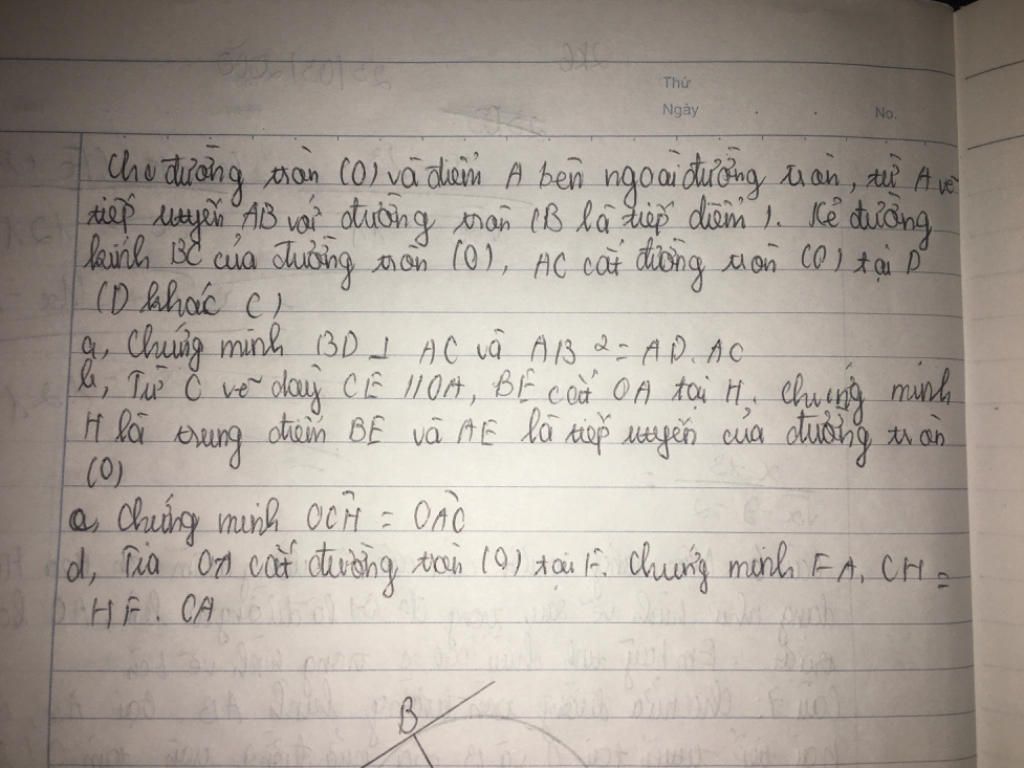 Thứ
Ngày
No.
Cho đường tròn (O) và điểm A bên ngoài đường tròn, từ A vẽ
tiếp tuyến AB với đường tròn (B là tiếp điểm). Kẻ đường
kính BC của đường tròn (O), AC cắt đường tròn (O) tại D
(D khác C)
a, Chứng minh BD ⊥ AC và AB² = AD. AC
b, Từ C vẽ dây CE // OA, BE cắt OA tại H. Chứng minh
H là trung điểm BE và AE là tiếp tuyến của đường tròn
(O)
c, Chứng minh OCH = OAC
d, Tia OA cắt đường tròn (O) tại F. Chứng minh FA. CH =
HF. CA
B